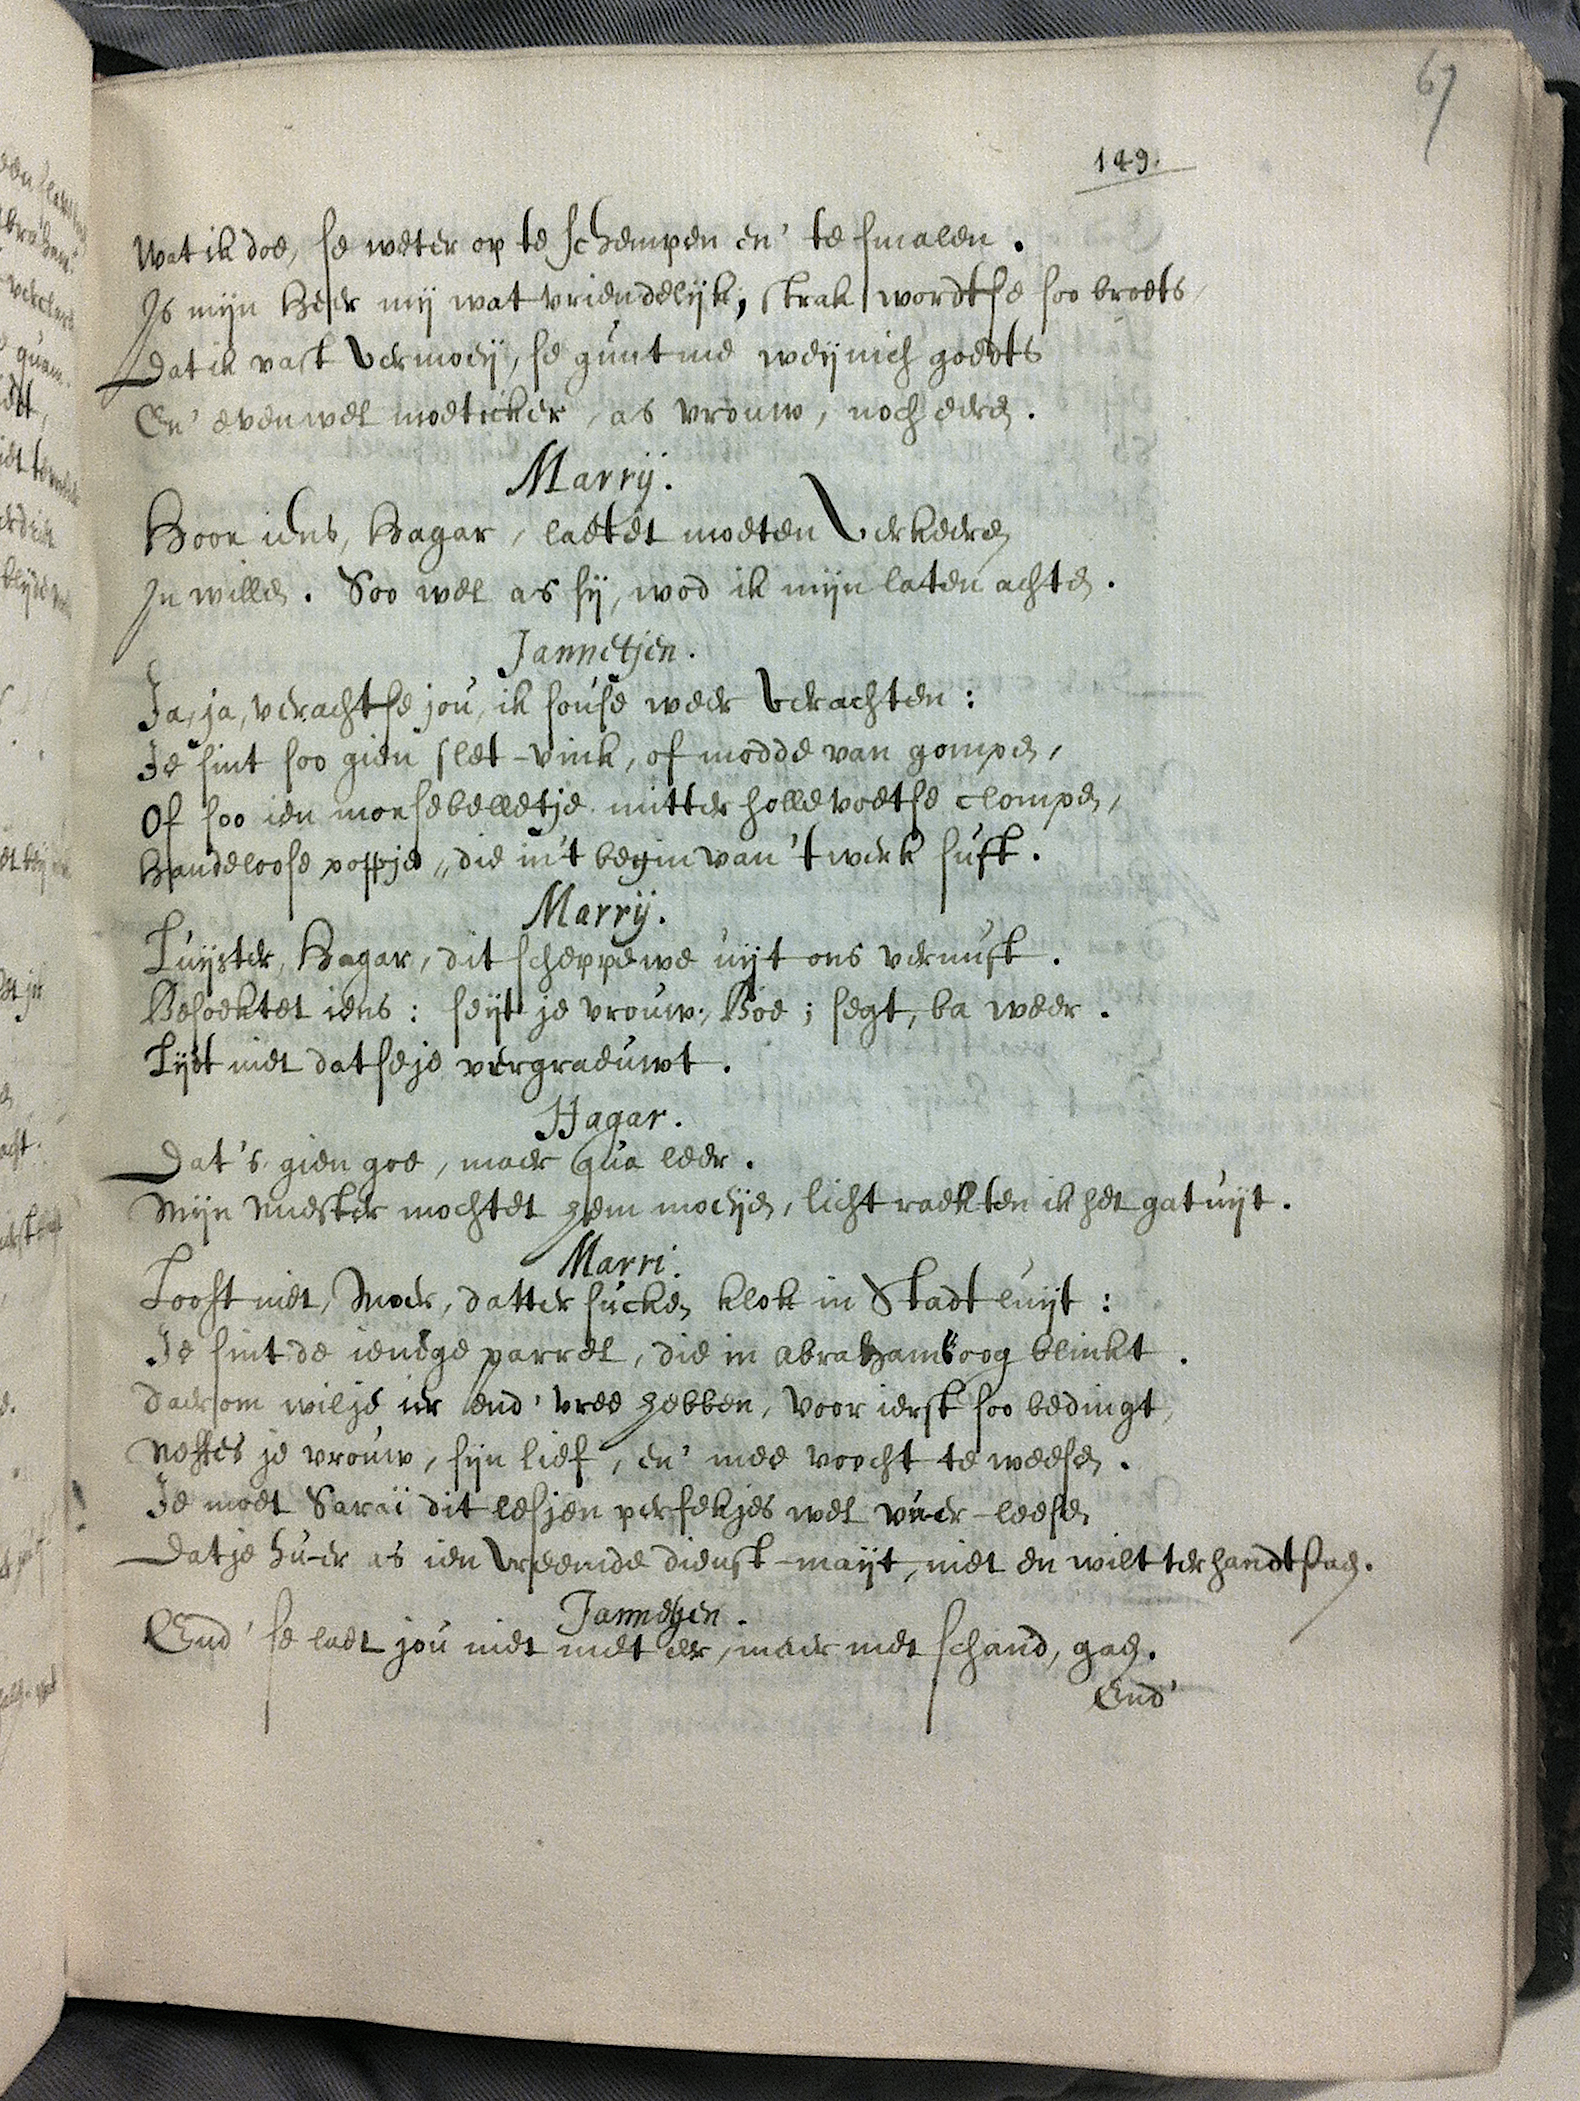 67
149.
Wat ik doe, se weter op te schempen en' te smalen.
Is mijn Heer mij wat vriendelijk, strak wordtse soo broets,
Dat ik vast vermoeij, se gunt me weijnich goedts
En' evenwel moeticker, as vrouw, noch eere.
Marrij.
Hoor iens, Hagar, laetet moeten verkeere
In wille. Soo wel as sij, wod ik mijn laten achte.
Jannetjen.
Ja, ja, verachtse jou, ik souse weer verachten:
Je sint soo gien slet-vink, of modde van gompe,
Of soo ien morsebelletje mitter hollevoetse clompe,
Handeloose poppje, die in't begin van 't werk suft.
Marrij.
Luijster, Hagar, dit scheppewe uijt ons vernuft.
Besoektet iens: seijt je vrouw, Boe; segt, ba weer.
Lijdt niet datseje vergraeuwt.
Hagar.
Dat's gien goe, maer qua leer.
Mijn Miester mochtet hem moeije, licht raekten ik het gat uijt.
Marri.
Looft niet, Moer, datter sucke klok in Stadt luijt:
Je sint de ienige parrel, die in Abrahams oog blinkt.
Daerom wilje ier end' vree hebben, voor ierst soo bedingt,
Neffes je vrouw, sijn lief, en' mee voocht te weese.
Je moet Saraï dit lesjen perfekjes wel vuer-leese
Datje huer as ien vreemde dienst-maijt, niet en wilt ter handt stae.
Jannetjen.
End' se laet jou niet met eer, maer met schand, gae.
End'